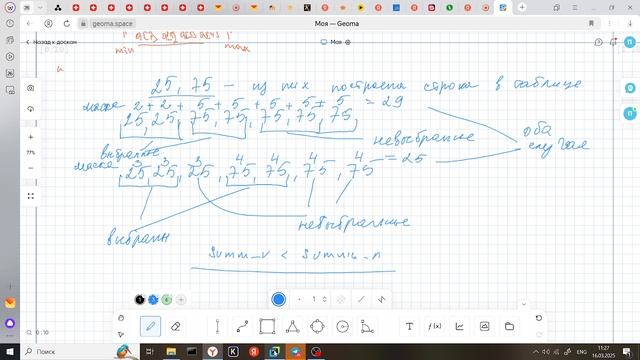 geoma.space
Моя — Geoma
Назад к доскам
Моя
min
max
25, 75 — из них построена строка в таблице
маска 2 + 2 + 5 + 5 + 5 + 5 + 5 = 29
25, 25, 75, 75, 75, 75, 75
выбранные
невыбранные
оба случая
маска 3 3 3 4 4 4 4 = 25
25, 25, 25, 75, 75, 75, 75
невыбранные
выбранн
Summ_v < Summ_n
77%
0:10
1
T
f(x)
Поиск
ENG
11:27
16.03.2025